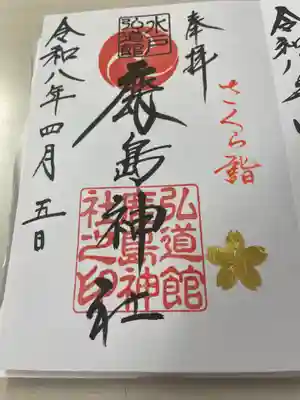 奉拝
さくら詣
水戸
弘道館
鹿島神社
弘道館
鹿島神
社之印
令和八年四月五日